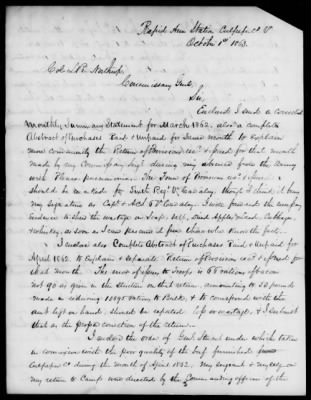 Rapid Ann Station Culpeper Co Va
October 1st 1863.
Col L. B. Northrop,
Commissary Genl.
Sir,
Enclosed I send a corrected
Monthly Summary Statement for March 1862, also a complete
Abstract of Purchases Paid & Unpaid for same month to explain
more conveniently the Return of Provisions rec'd & issued for that month
made by my Commissary Sergt during my absence from the Army
with Pleuro pneumonia. The Form of Provision rec'd & issued
should be marked for Sixth Regt Va Cavalry, though I think I know
my signature as Capt & ACS 6th Va Cavalry. I will forward the
evidence to show the wastage on Soap, Salt, Dried Apples, Lard, Cabbage,
& whiskey, as soon as I can procure it from those who know the facts.
I enclose also Complete Abstract of Purchases Paid & Unpaid for
April 1862, to explain & separate Return of Provision rec'd & issued for
that month. The issues to Troops in rations of bacon
not go as given in the Election on that return, amounting to 30 pounds
made in reducing rations to Bulk, & to correspond with the
amt left on hand, should be wastage, & I submit
that as the proper correction of the return.
I enclose the order of Genl Stuart under which taken
in connexion with the poor quality of the Beef furnished from
Culpeper Co during the month of April 1862. My sergeant & myself on
my return to Camp were directed by the Commanding officer of the